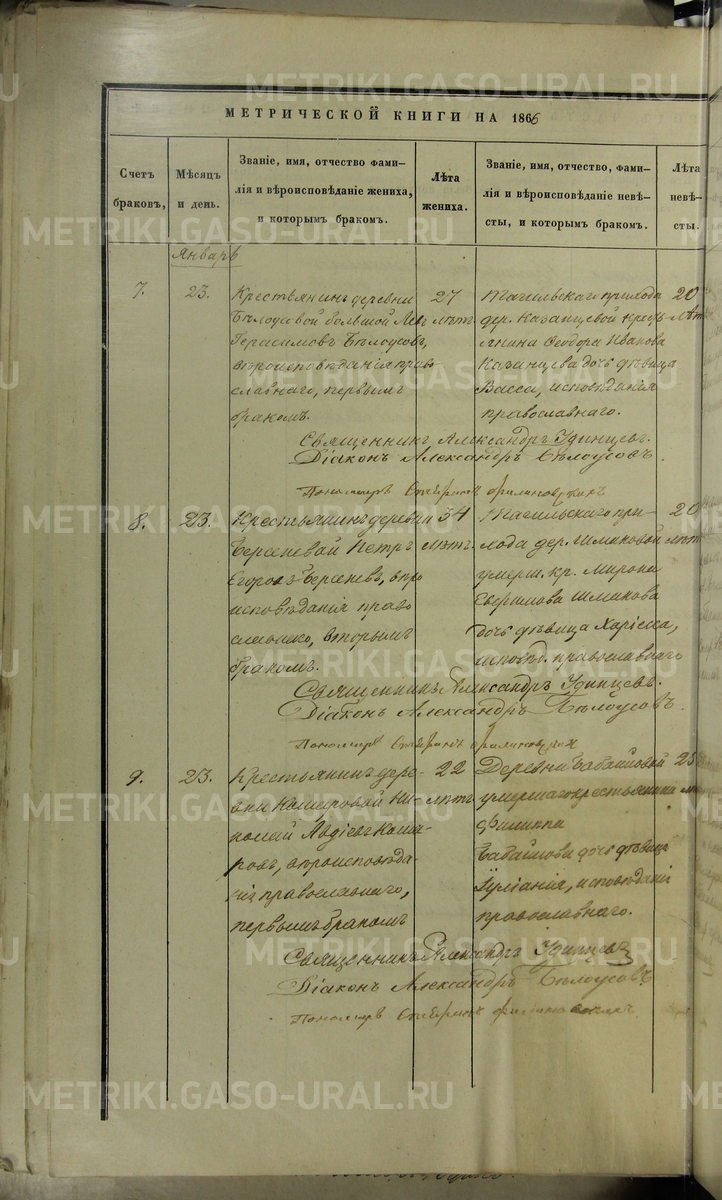 МЕТРИЧЕСКОЙ КНИГИ НА 1866
Счетъ браковъ,
Мѣсяцъ и день.
Званіе, имя, отчество фами-
лія и вѣроисповѣданіе жениха,
и которымъ бракомъ.
Лѣта
жениха.
Званіе, имя, отчество, фами-
лія и вѣроисповѣданіе невѣ-
сты, и которымъ бракомъ.
Лѣта
невѣ-
сты.
Январь
7.
23.
Крестьянинъ деревни
Бѣлоусовой большой Левъ
Герасимовъ Бѣлоусовъ,
вѣроисповѣданія право
славнаго, первымъ
бракомъ.
27
лѣтъ.
Тагильскаго прихода
дер. Казанцевой кресть
янина Ѳеодора Иванова
Казанцева дочь дѣвица
Васса, исповѣданія
православнаго.
20
лѣт
Священникъ Александръ Удинцевъ.
Діаконъ Александръ Бѣлоусовъ
Пономарь
8.
23.
Крестьянинъ деревни
Берсеневой Петръ
Егоровъ Берсеневъ, вѣро
исповѣданія право
славнаго, вторымъ
бракомъ.
34
лѣтъ.
Тагильскаго при-
хода дер. Шмаковой
умерш. кр. Мирона
Евфимова Шмакова
дочь дѣвица Харіеса,
исповѣд. православнаго
20
лѣт
Священникъ Александръ Удинцевъ.
Діаконъ Александръ Бѣлоусовъ
Пономарь
9.
23.
Крестьянинъ дере-
вни Комаровой Ни-
колай Авдіевъ Кома-
ровъ, вѣроисповѣда-
нія православнаго,
первымъ бракомъ
22
лѣтъ
Деревни Бабайловой
умершаго крестьянина
Филиппа
Бабайлова дочь дѣвица
Іуліанія, исповѣданія
православнаго.
25
Священникъ Александръ Удинцевъ
Діаконъ Александръ Бѣлоусовъ
Пономарь
METRIKI.GASO-URAL.RU